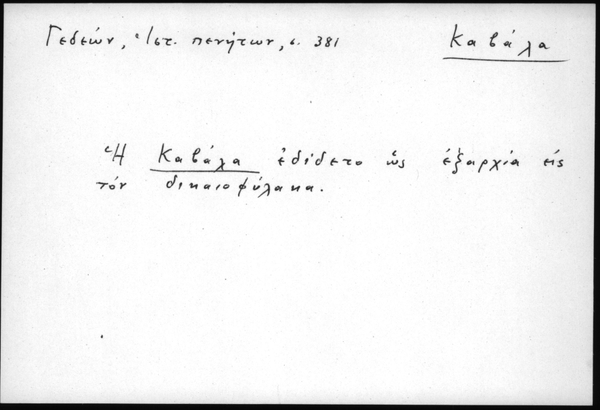 Γεδεών, Ἱστ. πενήτων, σ. 381
Καβάλα
Ἡ Καβάλα ἐδίδετο ὡς ἐξαρχία εἰς
τόν δικαιοφύλακα.